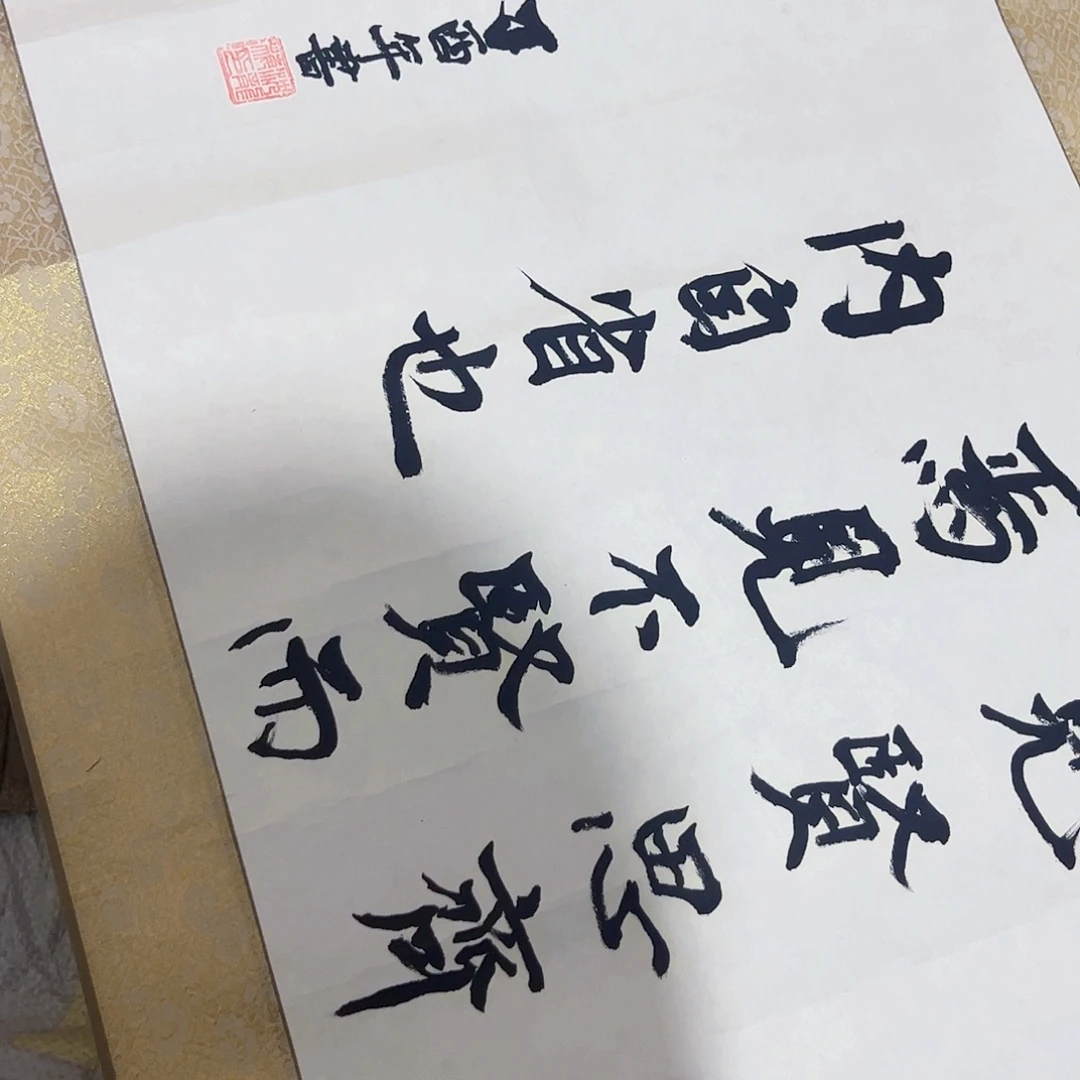 見賢思齊
焉見不賢而
内自省也
酉年書